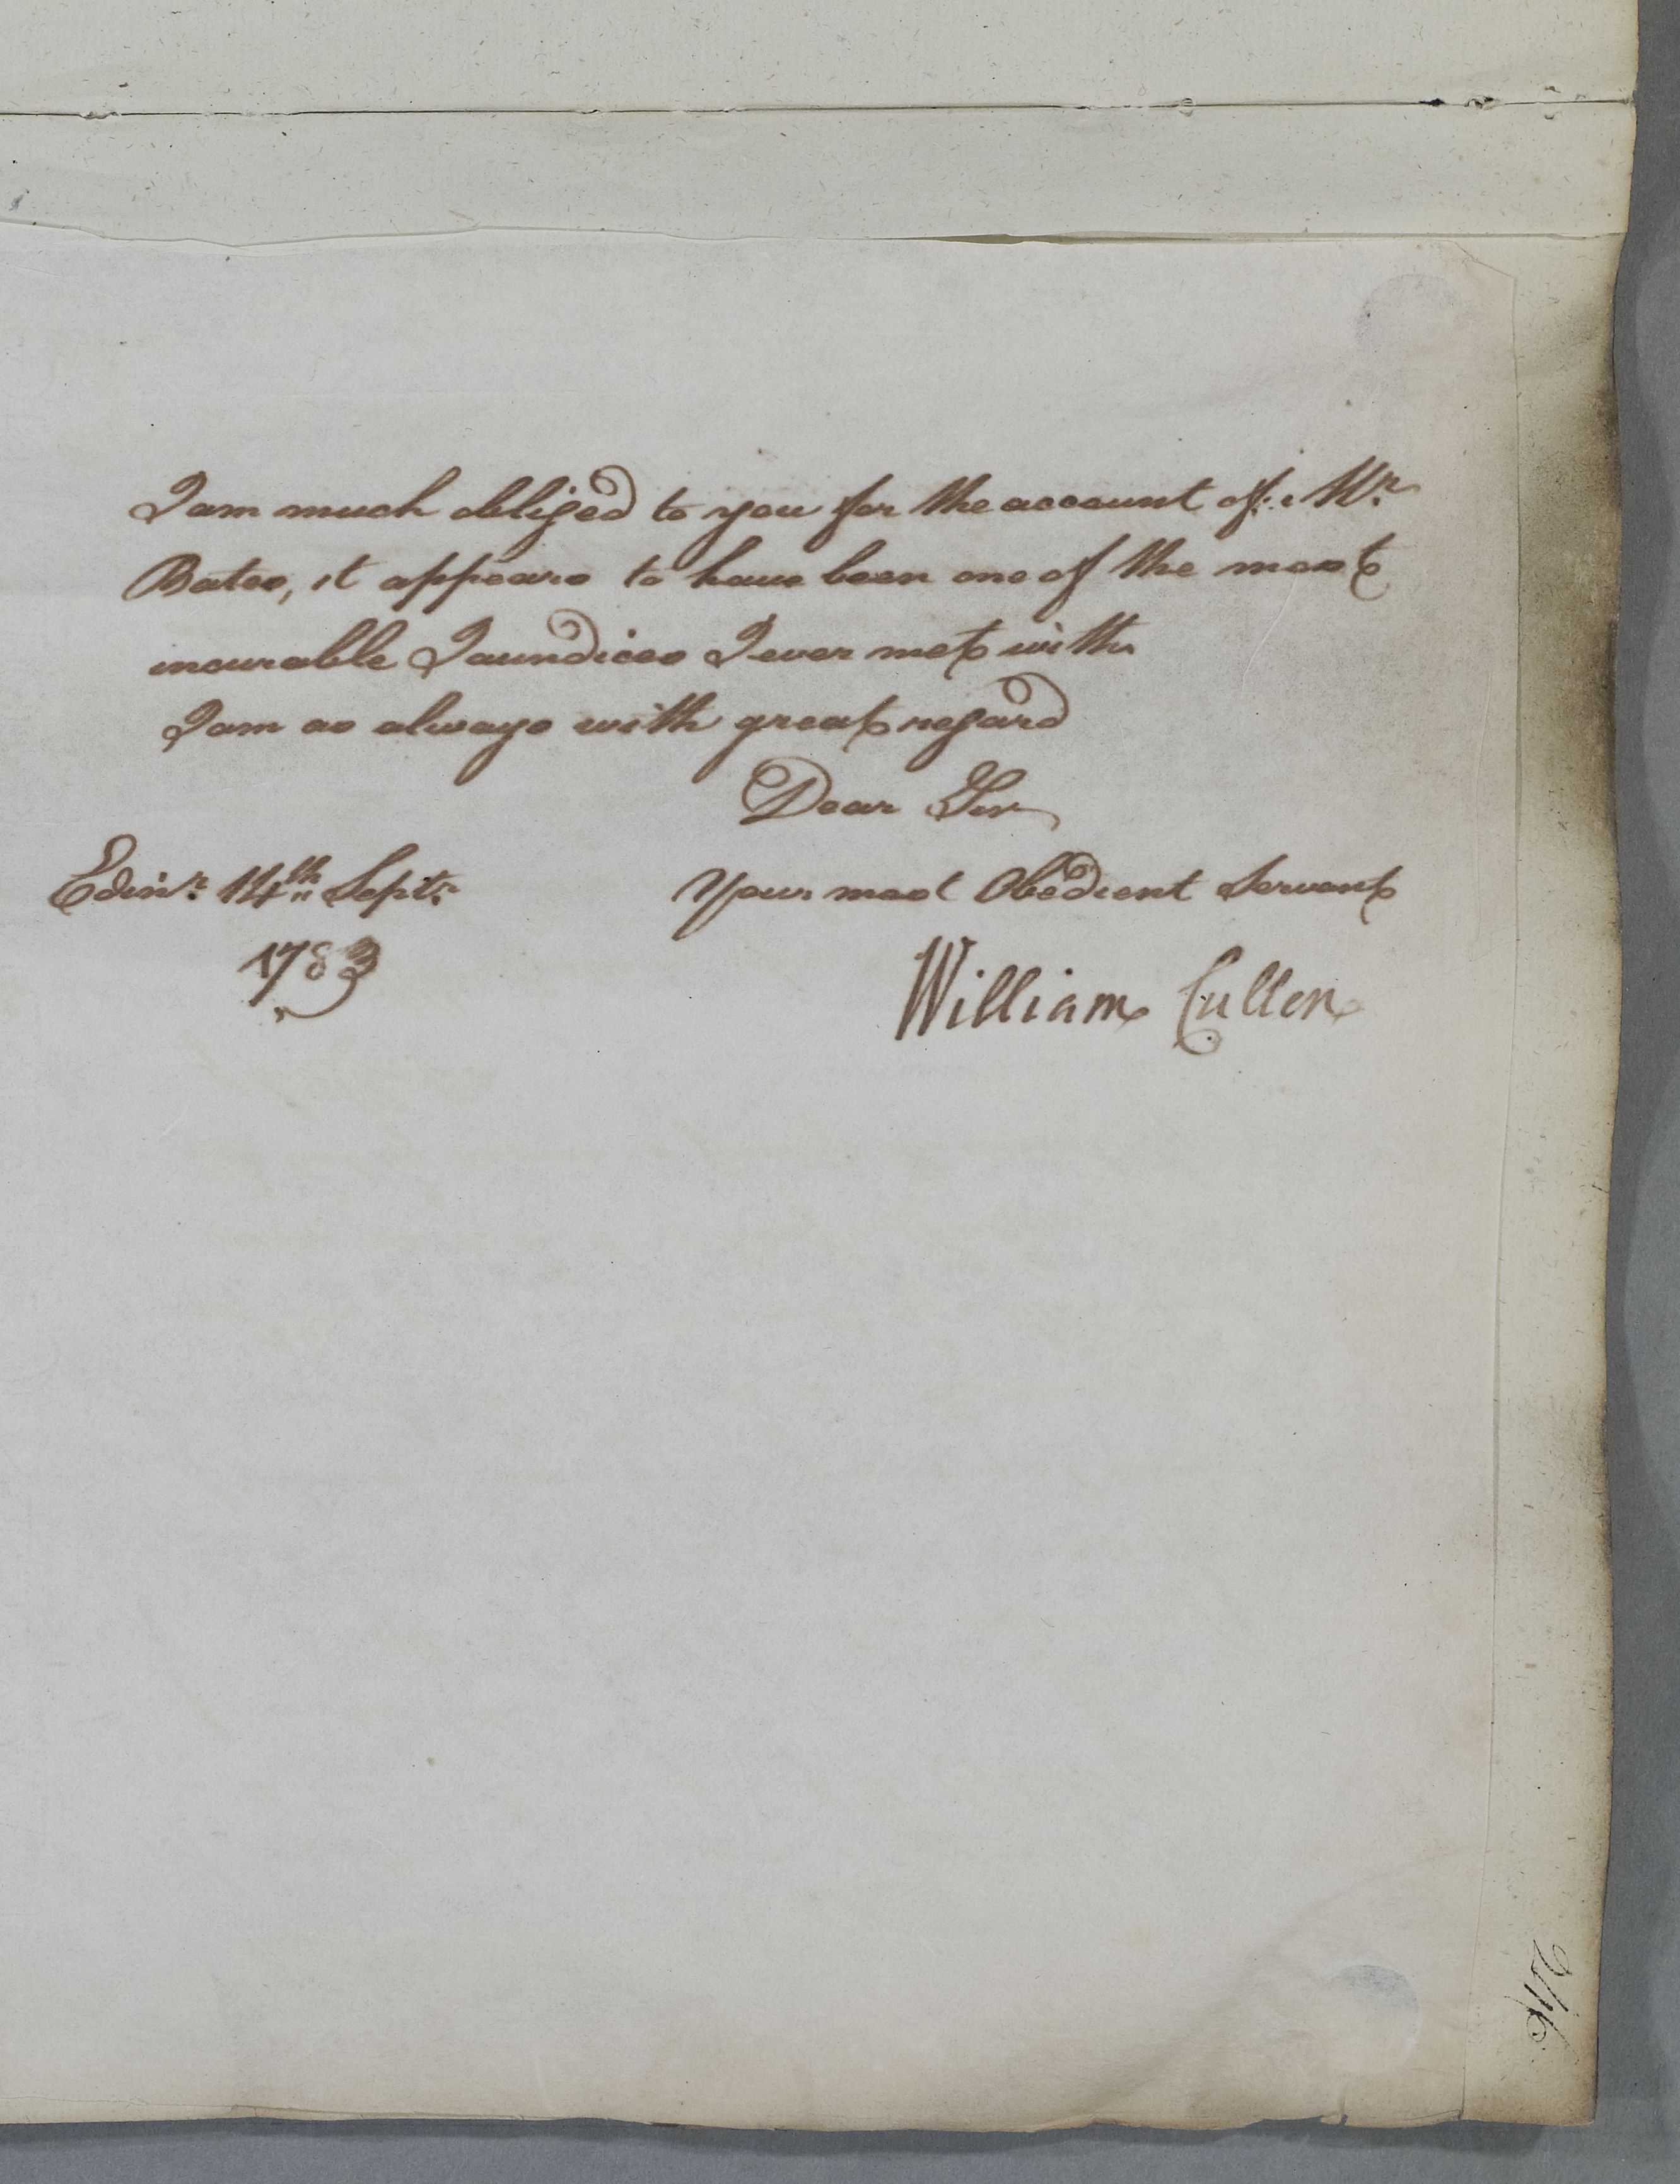 I am much obliged to you for the account of Mr.
Bates, it appears to have been one of the most
incurable Jaundices I ever met with
I am as always with great regard
Dear Sir
Your most Obedient Servant
Edinr. 14th Septr.
1783
William Cullen